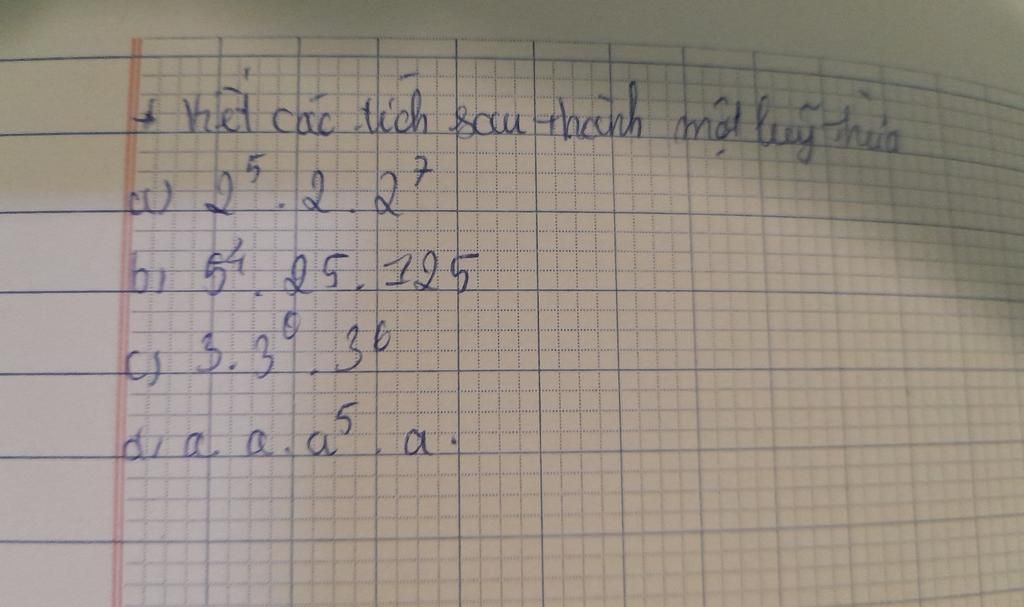 + Viết các tích sau thành một luỹ thừa
a) 2⁵ . 2 . 2⁷
b) 5⁴ . 25 . 125
c) 3 . 3⁰ . 3⁶
d) a . a . a⁵ . a .